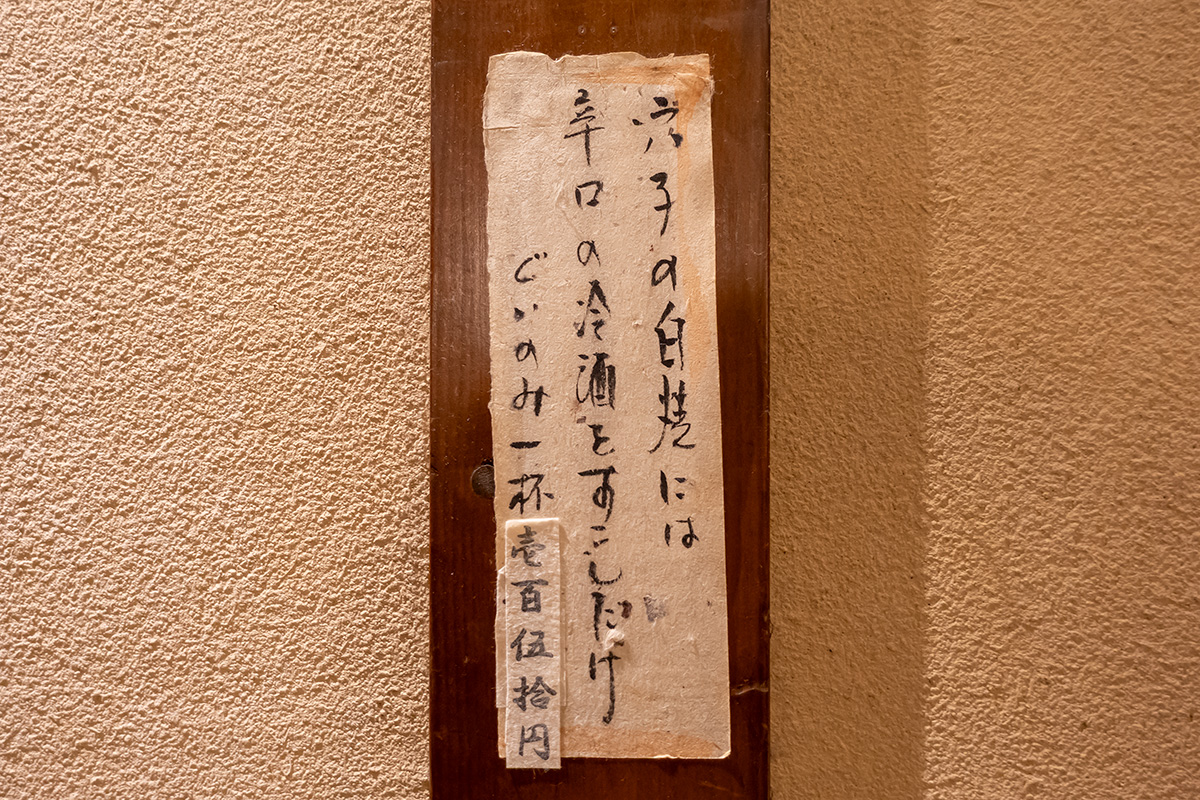 穴子の白焼には
辛口の冷酒をすこしだけ
ぐいのみ一杯壱百伍拾円